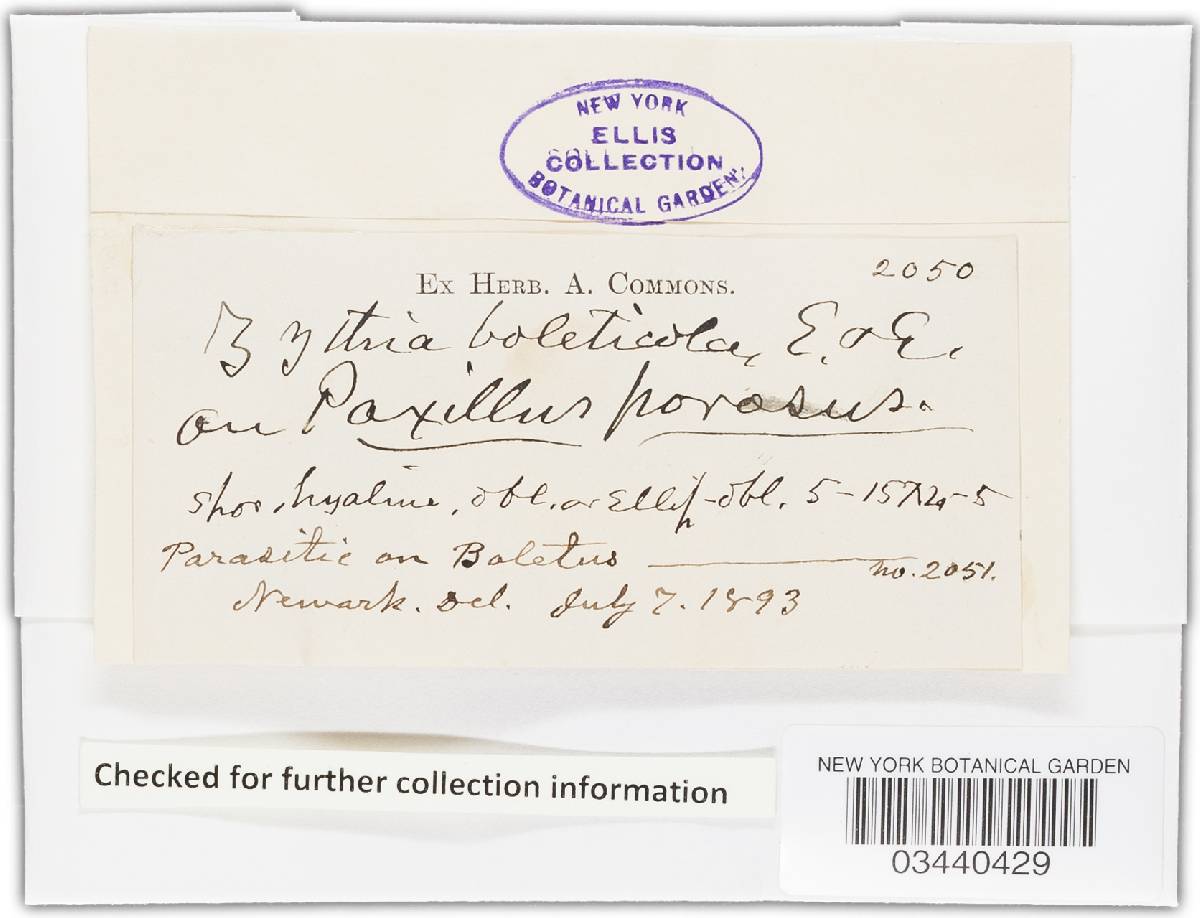 NEW YORK
ELLIS
COLLECTION
BOTANICAL GARDEN
Ex Herb. A. Commons.
2050
Zythia boleticola, E. & E.
on Paxillus porosus.
spor, hyaline, obl. or Ellip-obl. 5-15 X 4-5
Parasitic on Boletus — no. 2051.
Newark. Del. July 7. 1893
Checked for further collection information
NEW YORK BOTANICAL GARDEN
03440429